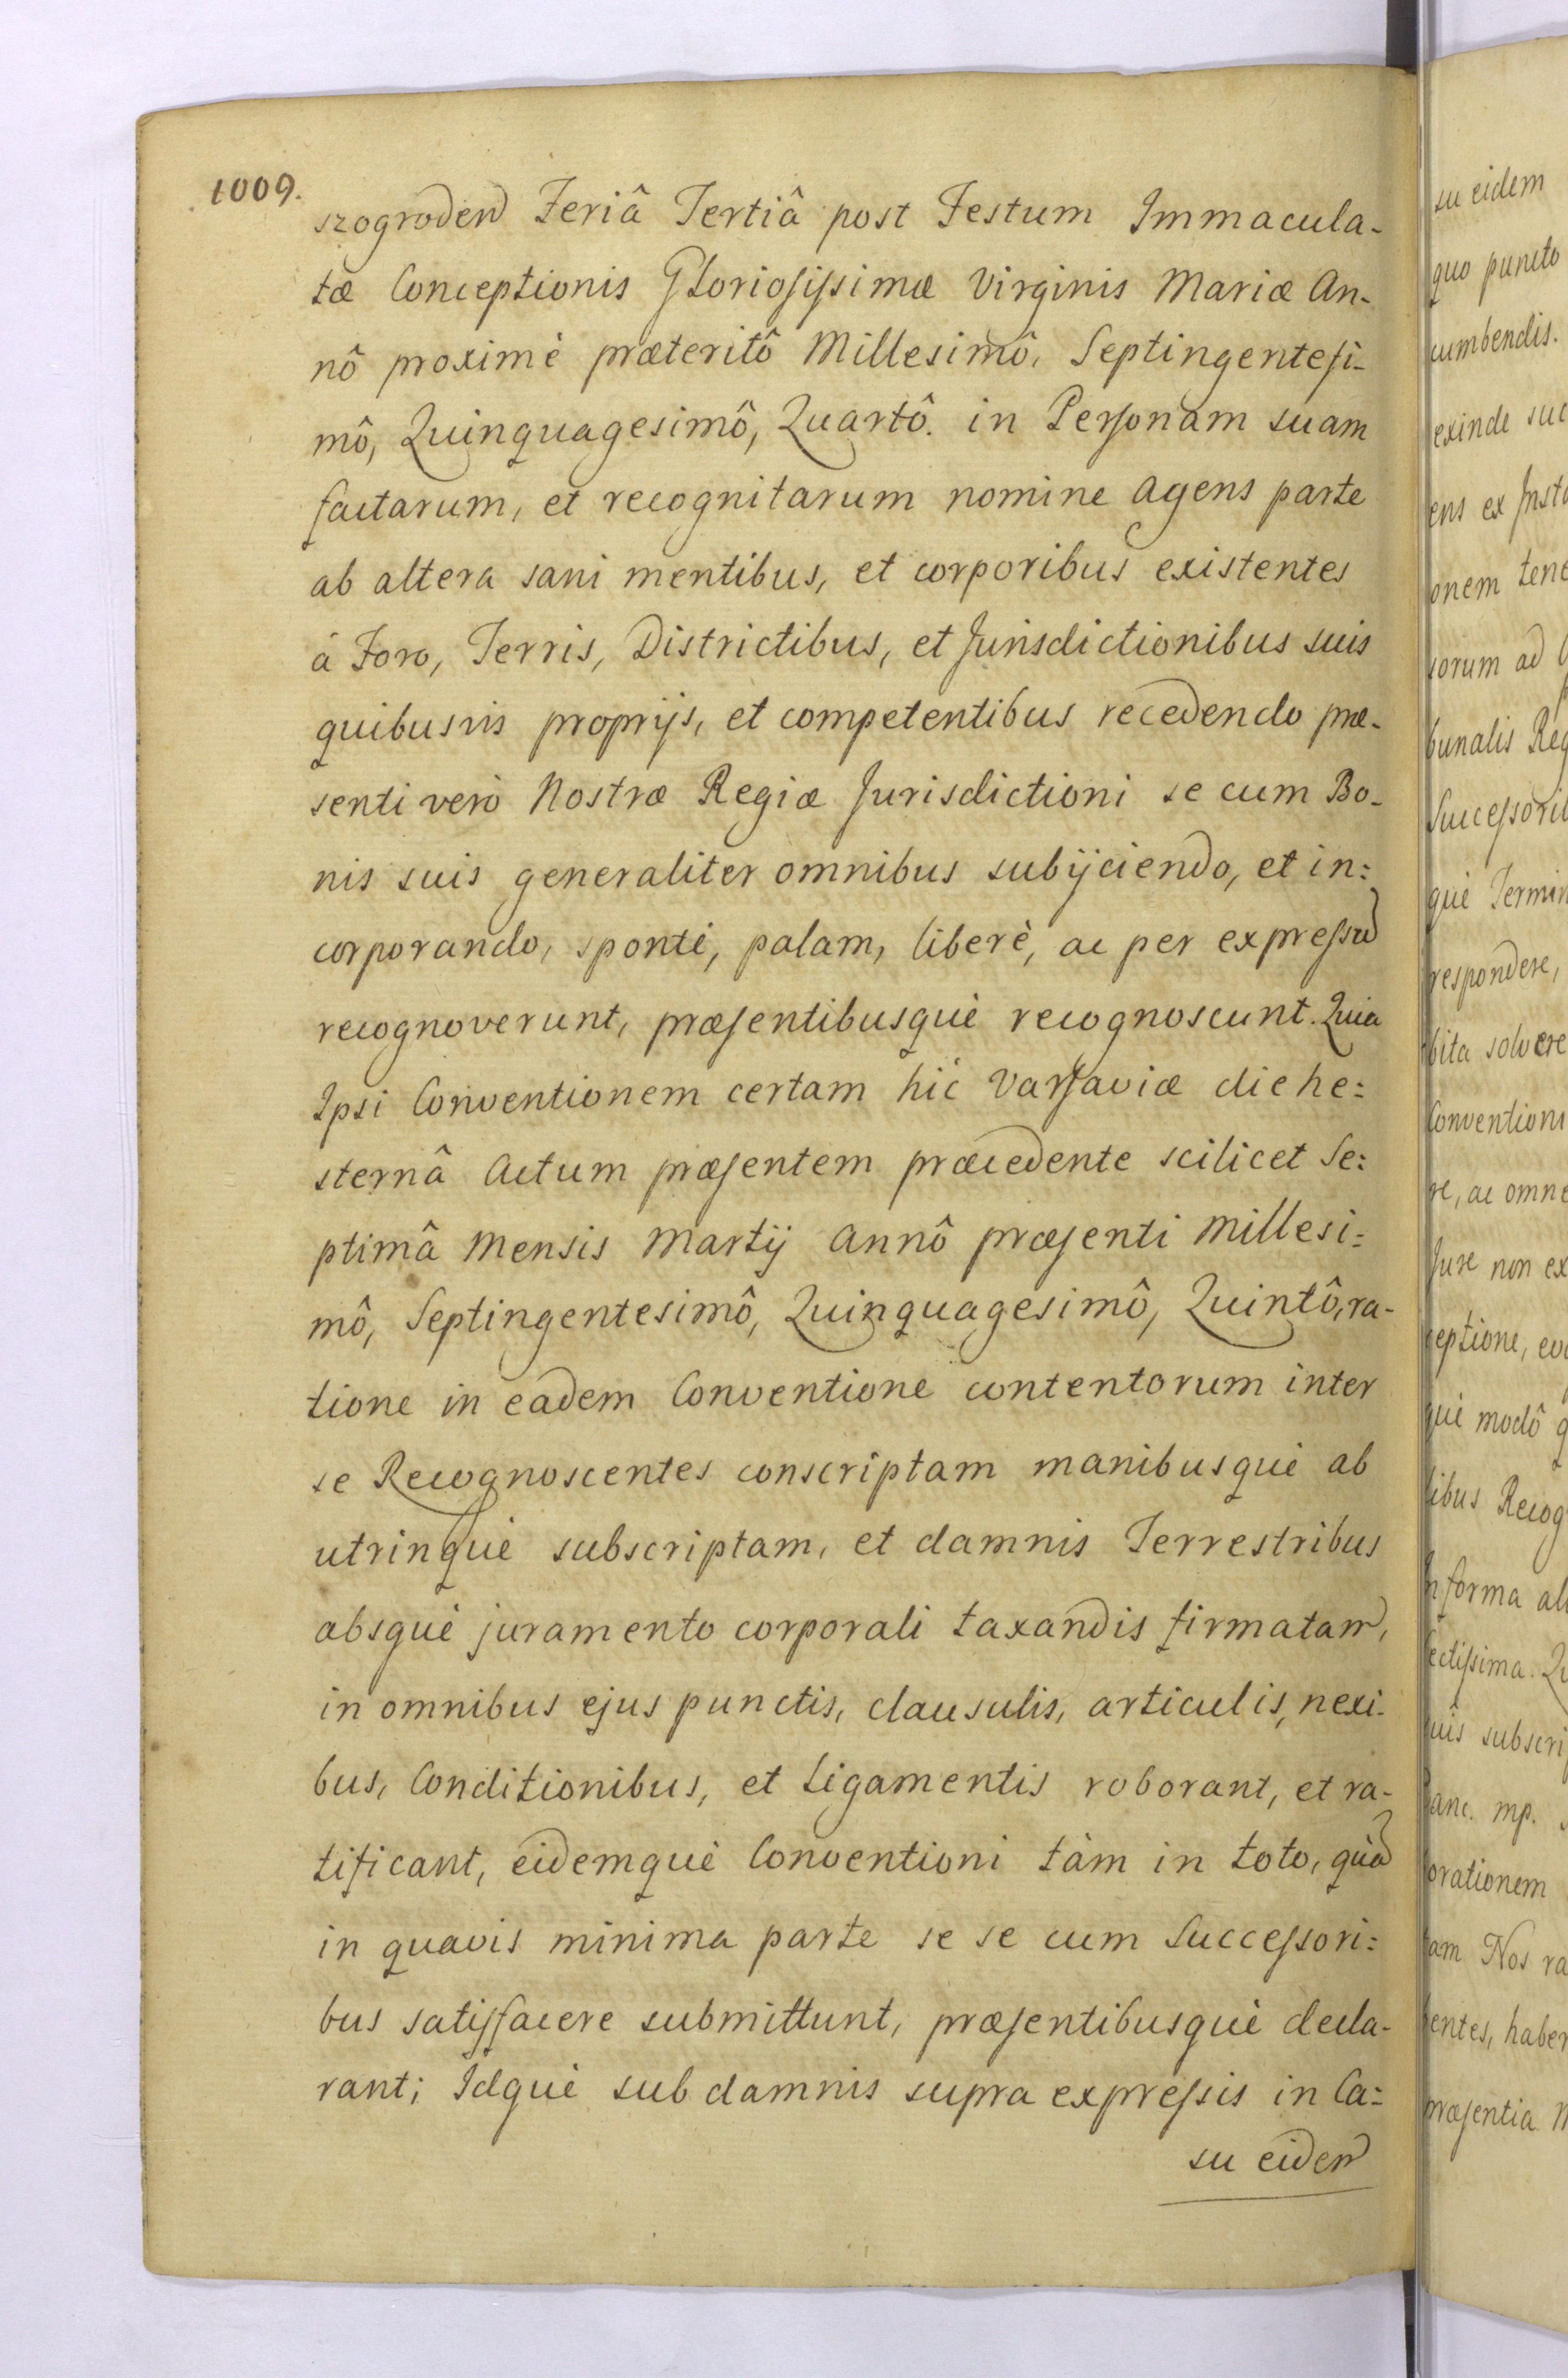 1009.
szogroden Feriâ Tertiâ post Festum Immacula-
tæ Conceptionis Gloriosissimæ Virginis Mariæ An-
nô proximè præteritô Millesimô, Septingentesi-
mô, Quinquagesimô, Quartô. in Personam suam
factarum, et recognitarum nomine agens parte
ab altera sani mentibus, et corporibus existentes
á Foro, Terris, Districtibus, et Jurisdictionibus suis
quibusvis proprijs, et competentibus recedendo præ-
senti verò Nostræ Regiæ Jurisdictioni se cum Bo-
nis suis generaliter omnibus subijciendo, et in:
corporando, sponté, palam, liberè, ac per expressū
recognoverunt, præsentibusquè recognoscunt. Quia
Ipsi Conventionem certam hic Varsaviæ die he:
sternâ Actum præsentem præcedente scilicet Se:
ptimâ Mensis Martij Annô præsenti Millesi:
mô, Septingentesimô, Quinquagesimô, Quintô, ra-
tione in eadem Conventione contentorum inter
se Recognoscentes conscriptam manibusquè ab
utrinquè subscriptam, et damnis Terrestribus
absquè juramento corporali taxandis firmatam,
in omnibus ejus punctis, clausulis, articulis, nexi-
bus, Conditionibus, et Ligamentis roborant, et ra-
tificant, eidemquè Conventioni tàm in toto, quà
in quavis minima parte se se cum Successori:
bus satisfacere submittunt, præsentibusquè decla-
rant; Idquè sub damnis supra expressis in Ca:
su eidem
su eidem
quo puncto
cumbendis.
exinde suc
ens ex Inst
onem tene
sorum ad
bunalis Reg
Successorib
què Termin
respondere,
bita solvere
Conventioni
re, ac omne
Jure non ex
ceptione, evo
què modô q
libus Recog
forma al
ectissima. Qu
uis subscri
anc. mp.
orationem
am Nos ra
entes, haber
præsentia